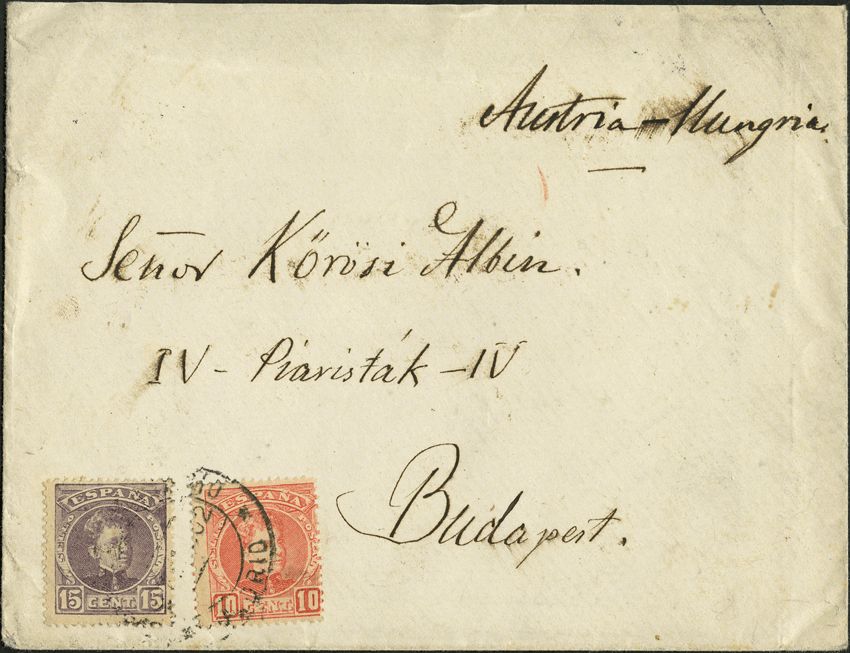 Austria-Hungria.
Señor Kőrösi Albin.
IV - Piaristák - IV
Budapest.
ESPAÑA
SELLO POSTAL
15 CENT 15
ESPAÑA
SELLO POSTAL
10 CENT 10